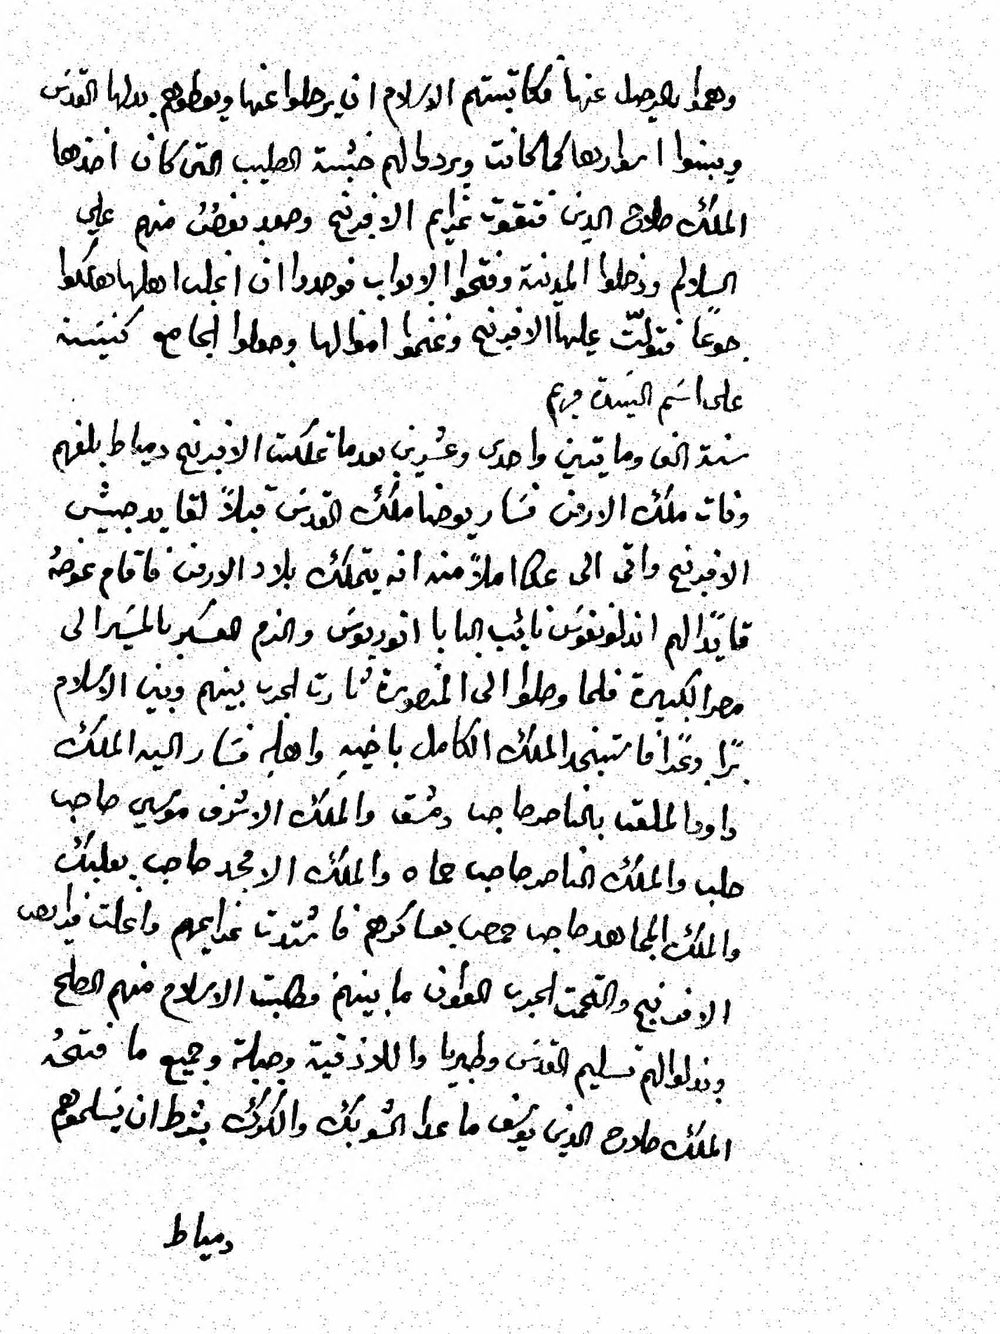 وهموا بالرحيل عنها فكاتبتهم الاسلام ان يرحلوا عنها ويعطوهم بدلها القدس
ويبنوا اسوارها كما كانت ويردوا لهم خشبة الصليب التي كان اخذها
الملك صلاح الدين فتقوت عزايم الافرنج وصعد بعضٌ منهم على
السلالم ودخلوا المدينة وفتحوا الابواب فوجدوا ان اغلب اهلها هلكوا
جوعاً فتولّت عليها الافرنج وغنموا اموالها وجعلوا الجامع كنيسة
على اسم السيدة مريم
سنة الف ومايتين واحدى وعشرين بعدما تملكت الافرنج دمياط بلغهم
وفات ملك الارمن فسار يوحنا ملك القدس قبلاً لقايد جيش
الافرنج واتى الى عكا املاً منه انه يتملك بلاد الارمن فاقام عوضهُ
قايدًا لهم اندلونفوس نايب البابا انوريوس والزم العسكر بالمسير الى
مصر الكبيرة فلما وصلوا الى المنصورة ثارت الحرب بينهم وبين الاسلام
برًا وبحرًا فاستنجد الملك الكامل باخيهِ واهلهِ فسار اليه الملك
داود الملقب بالناصر صاحب دمشق والملك الاشرف موسى صاحب
حلب والملك الناصر صاحب حماه والملك الامجد صاحب بعلبك
والملك المجاهد صاحب حمص بعساكرهم فاشتدت عزايمهم وانحلت
الافرنج والتحمت الحرب العوان ما بينهم وطلبت الاسلام منهم الصلح
وبذلوا لهم تسليم القدس وطبريا واللاذقية وجبلة وجميع ما فتحهُ
الملك صلاح الدين يوسف ما عدا الشوبك والكرك بشرط ان يسلموهم
دمياط